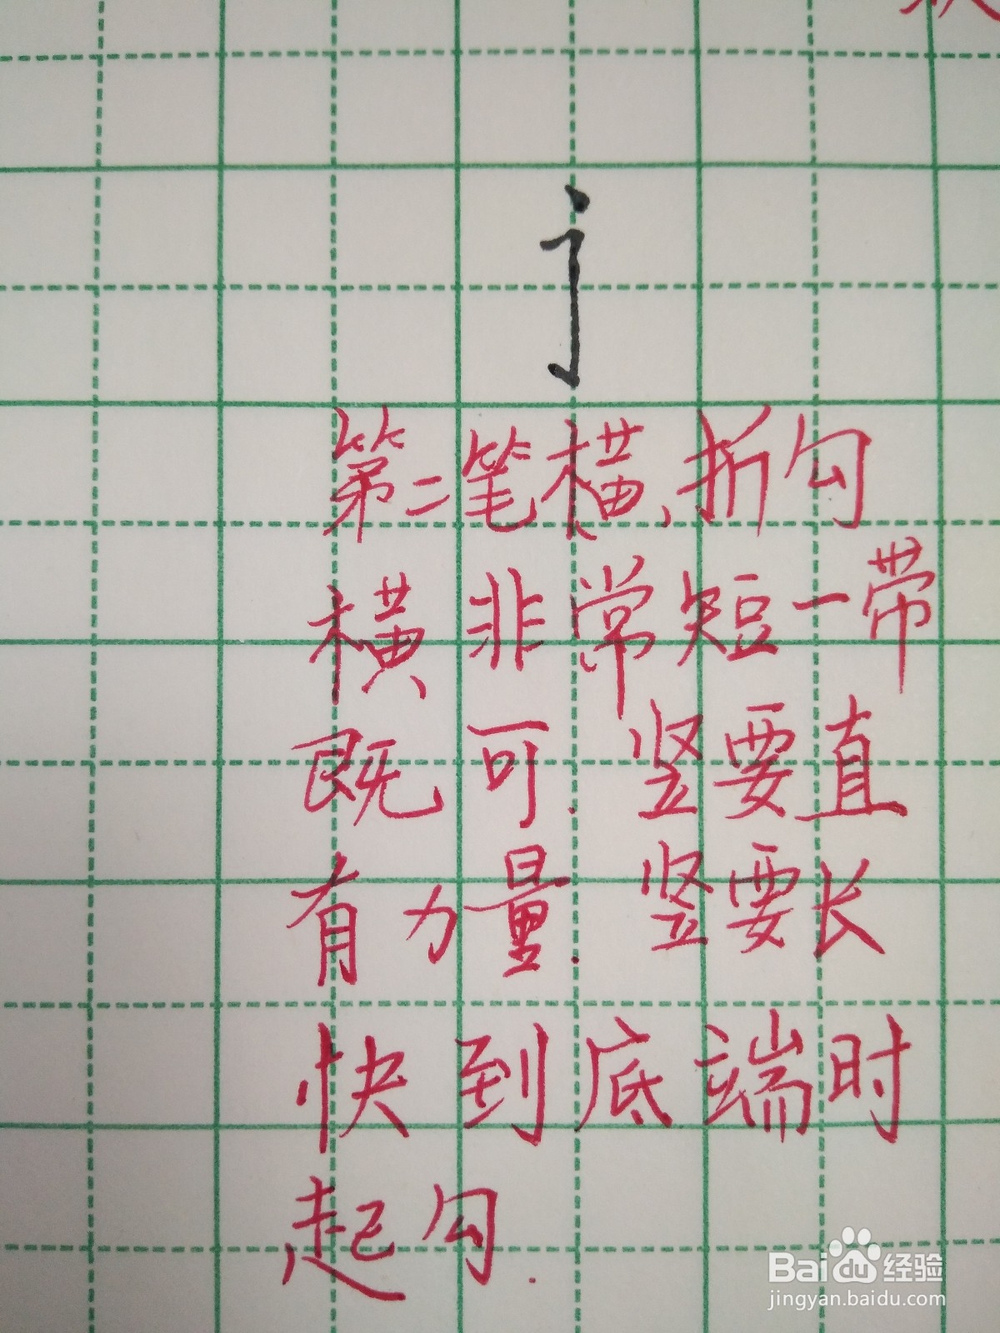 第二笔横、折勾
横非常短一带
既可.竖要直
有力量.竖要长
快到底端时
起勾.
Bai du 经验
jingyan.baidu.com